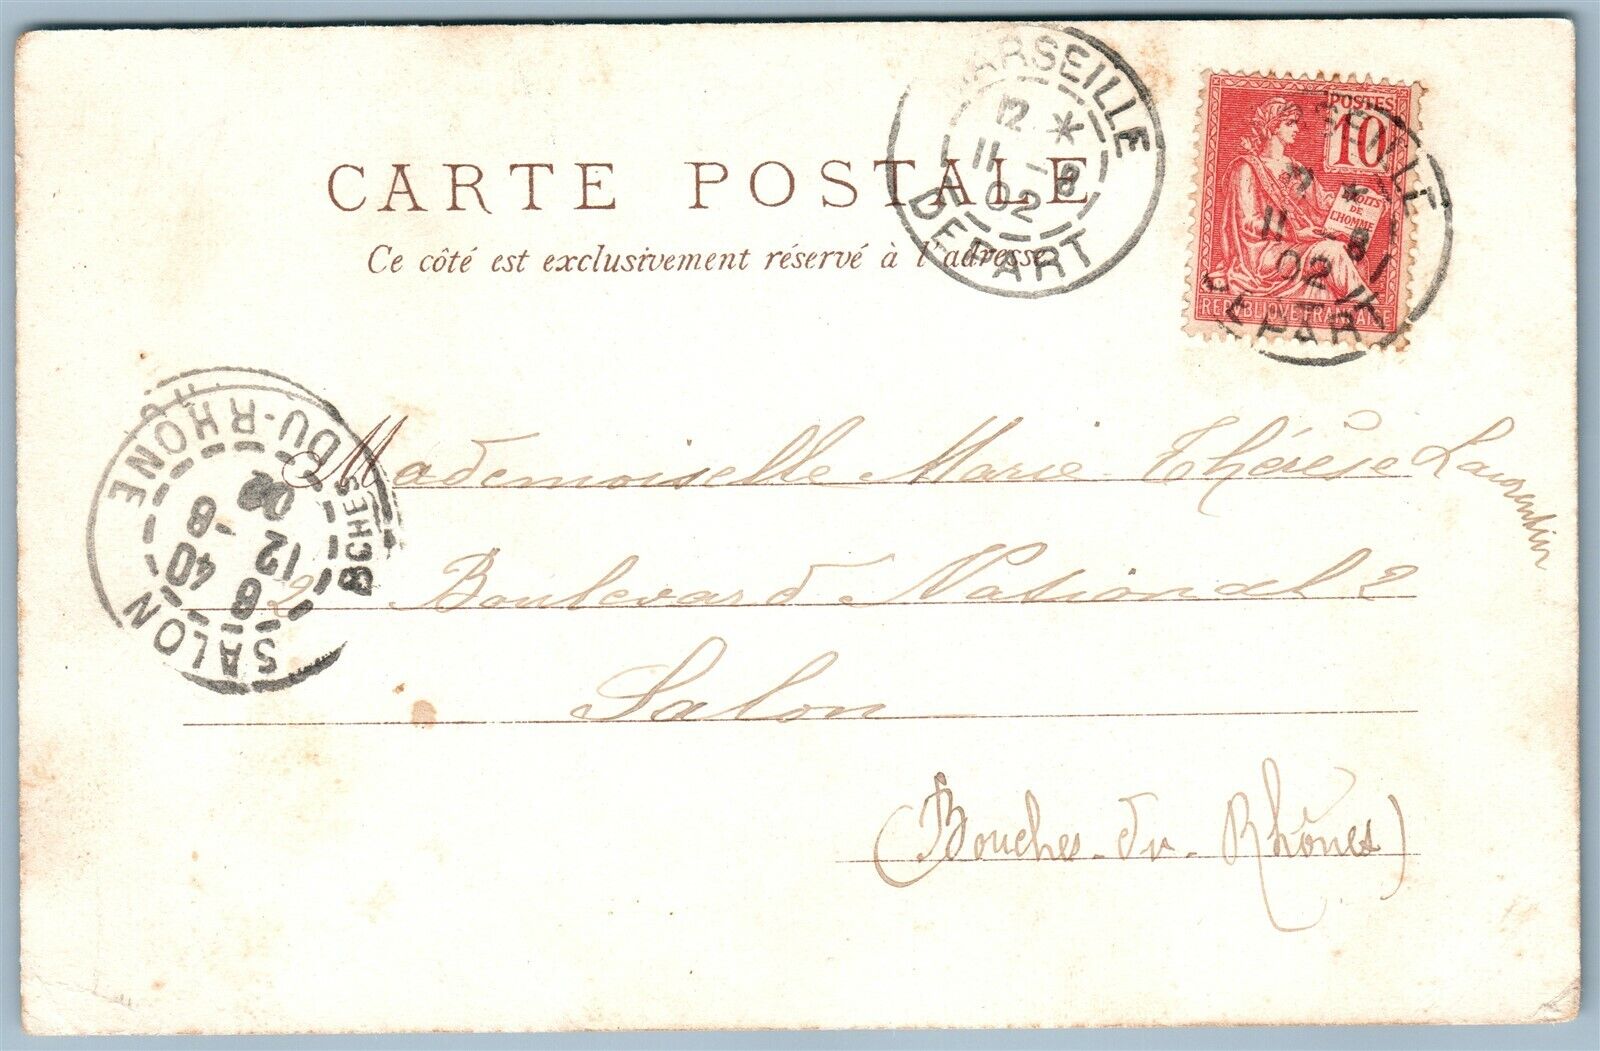 CARTE POSTALE
Ce côté est exclusivement réservé à l'adresse
MARSEILLE
12 *
11 -8
02
DEPART
POSTES
10
DROITS
DE
L'HOMME
REPUBLIQUE FRANÇAISE
MARSEILLE
12 *
11 -8
02
DEPART
SALON
6 40
12 -8
02
BCHES DU-RHONE
Mademoiselle Marie Thérèse Laurentin
2 Boulevard National 2
Salon
(Bouches-du-Rhônes)